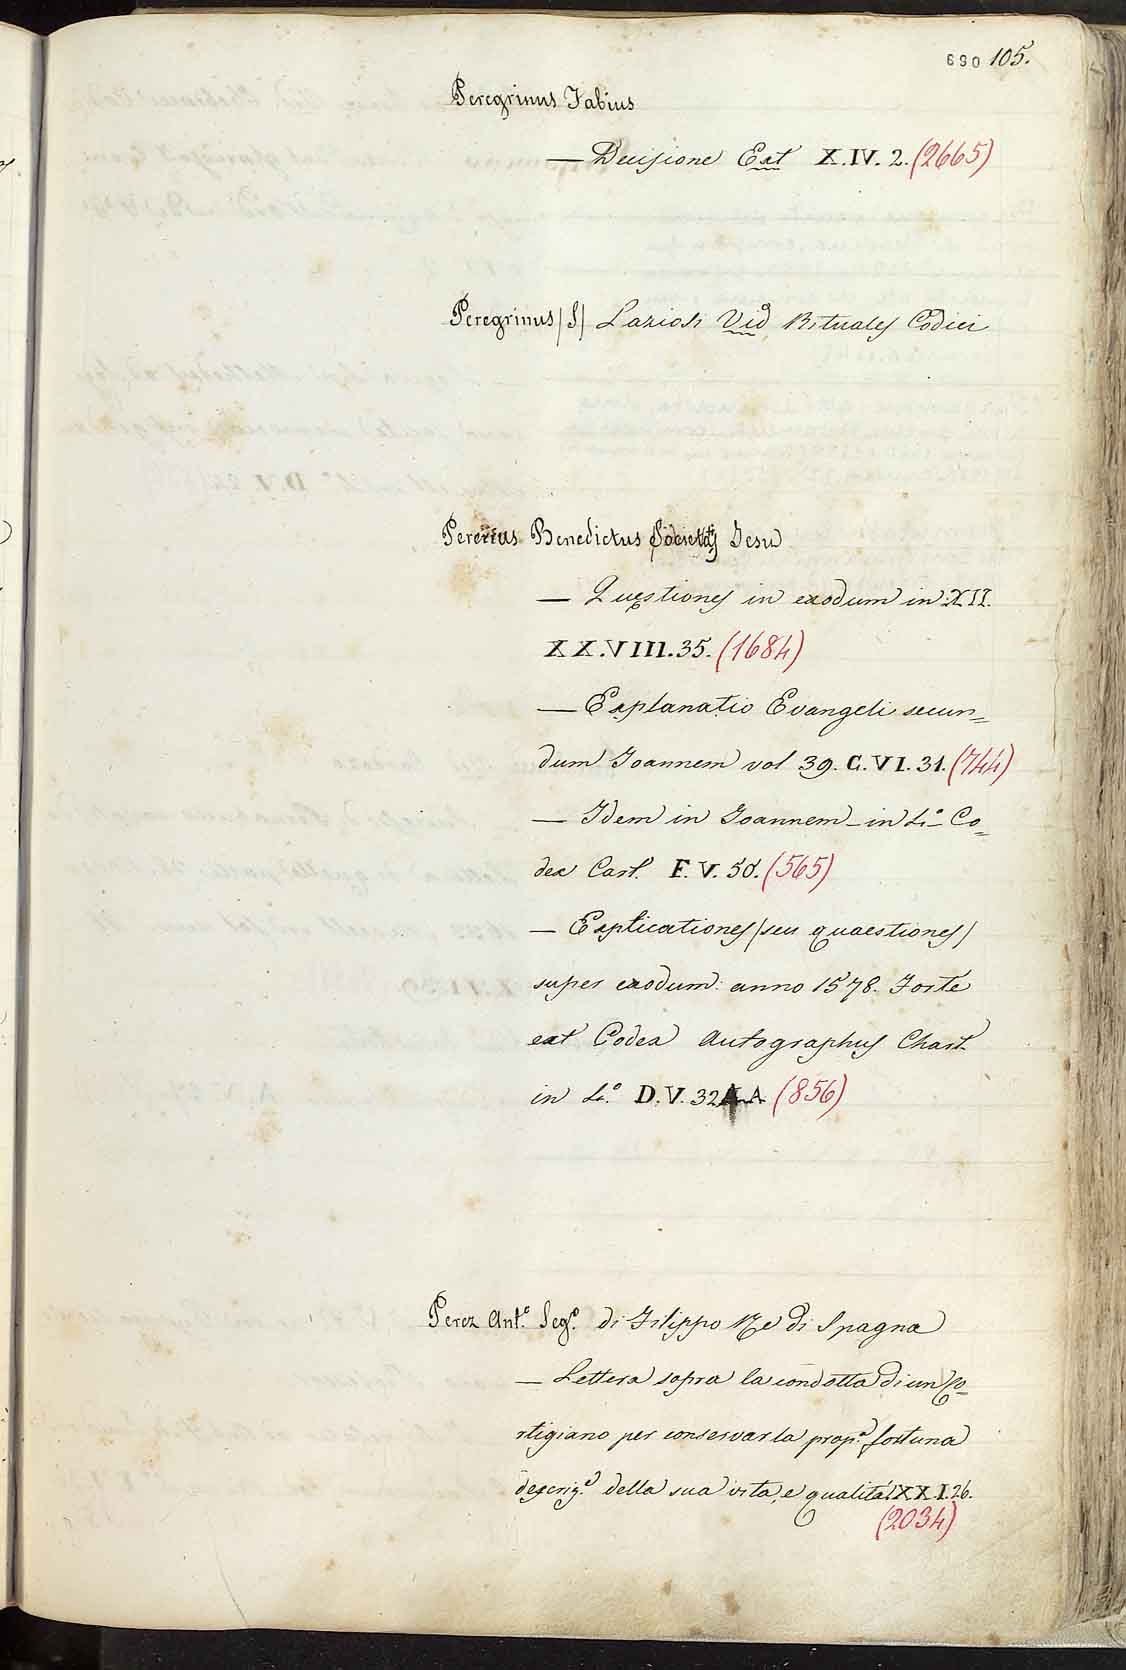 690 105.
Peregrinus Fabius
— Decisione Ext X.IV.2. (2665)
Peregrinus /S/ Laziosi Vid Rituales Codici
Pererius Benedictus Societatis Jesu
— Questiones in exodum in XII.
XX.VIII.35. (1684)
— Explanatio Evangeli secun=
dum Joannem vol 39. C.VI.31. (744)
— Idem in Joannem - in 4.º Co=
dex Cart. F.V.50. (565)
— Explicationes /seu quaestiones/
super exodum: anno 1578. Forte
ext Codex Autographus Chart.
in 4.º D.V. 32 A.A (856)
Perez Ant.º Seg.º di Filippo Re di Spagna
— Lettera sopra la condotta di un Co=
rtigiano per conservar la prop.ª fortuna
descriz.e della sua vita, e qualità XX.I.26.
(2034)